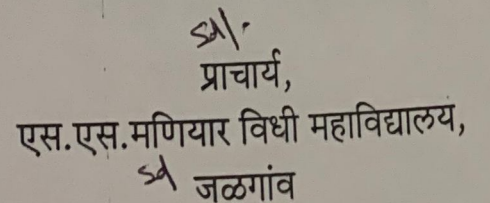 Sd/-
प्राचार्य,
एस.एस.मणियार विधी महाविद्यालय,
sd जळगांव